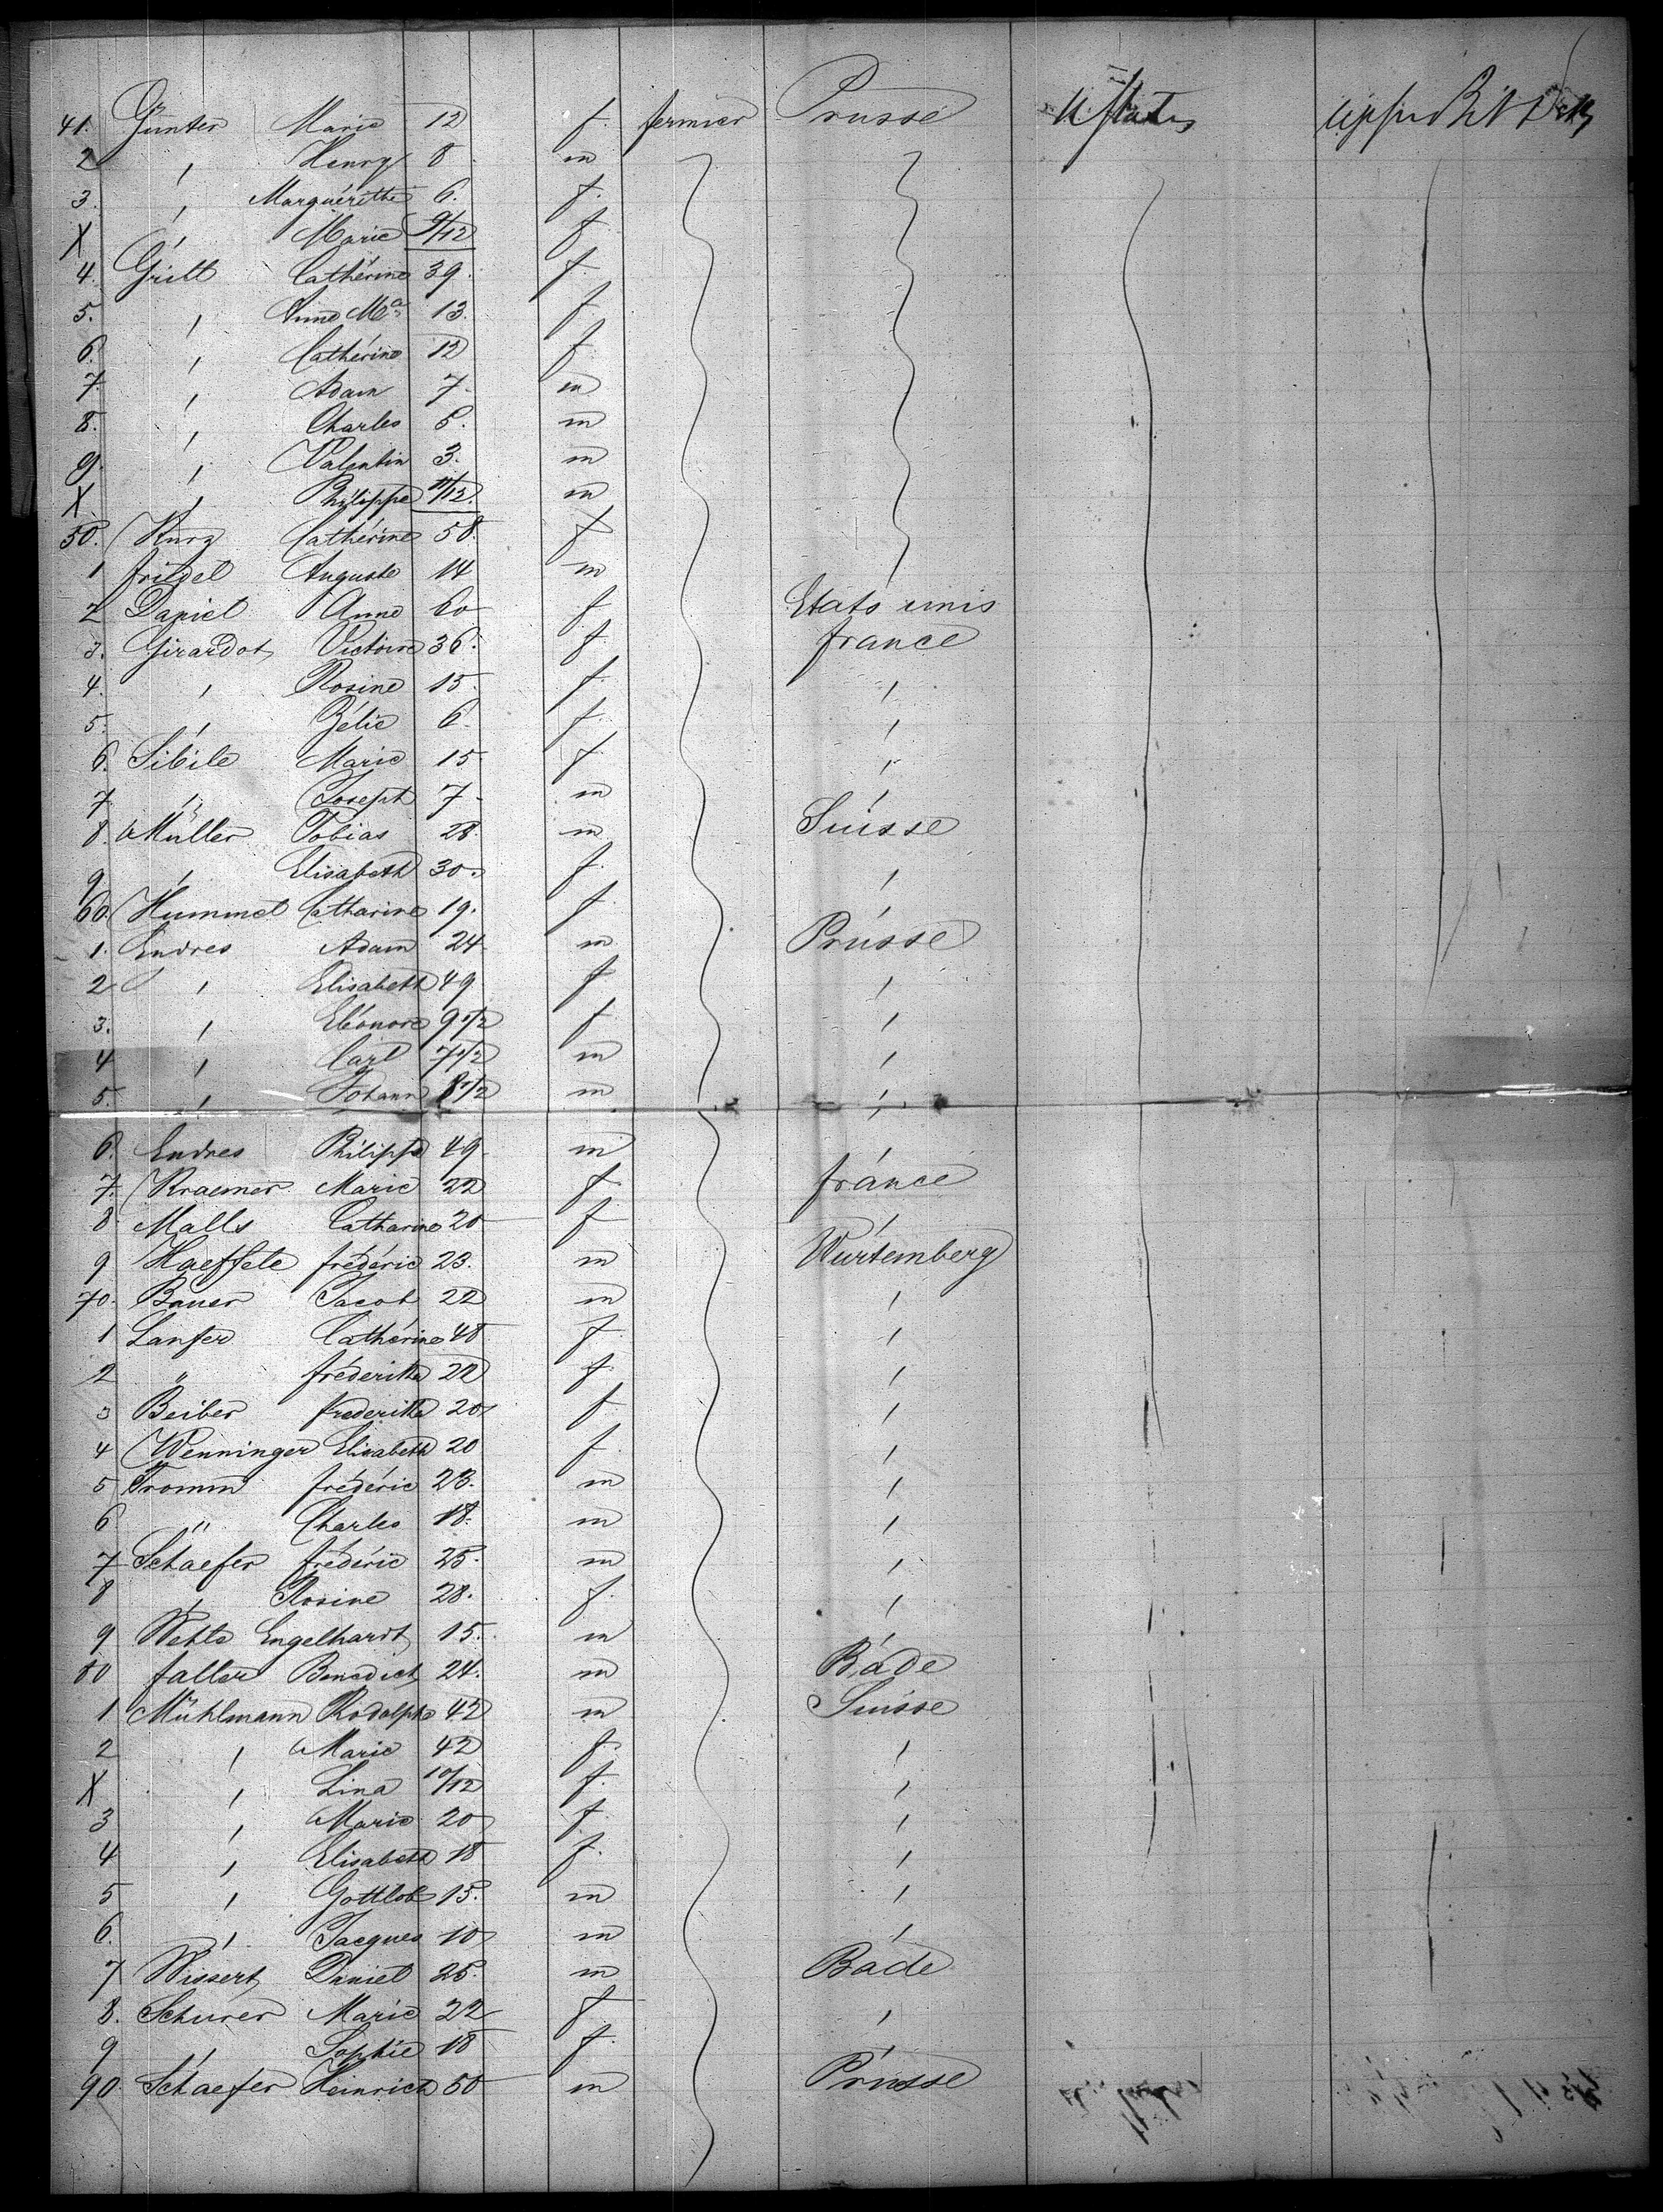 41. Günter Marie 12 f. fermier Prusse U States upper Bet Deck
2 " Henry 8 m
3. " Marguéritte 6. f.
X " Marie 9/12 f
4. Grill Cathérine 39. f.
5. " Anne Ma 13. f.
6. " Cathérine 12 f.
7. " Adam 7. m
8. " Charles 5. m
9. " Valentin 3. m
X. " Philippe 11/12. m
50. Kurz Cathérine 58. f
1 Friedel Auguste 14 m
2 Daniel Anne 60 f Etats unis
3. Girardot Victoire 36. f. france
4. " Rosine 15. f. "
5. " Zélie 6. f. "
6. Sibile Marie 15 f. "
7 " Joseph 7 - m "
8. Müller Tobias 28. m Suisse
9 " Elisabeth 30. f. "
60. Hummel Catharine 19. f. "
1. Endres Adam 24. m Prusse
2 " Elisabeth 49 f. "
3. " Eléonore 9 1/2 f. "
4 " Carl 7 1/2 m "
5. " Johann 8 1/2 m "
6. Endres Philippe 49. m "
7. Kraemer Marie 22 f. france
8. Malls Catharine 20 f "
9 Haeffele frédéric 23. m Würtemberg
70. Bauer Jacob 22 m "
1 Lanfer Cathérine 48 f. "
2 " fréderika 22 f. "
3 Beiber frederika 20 f. "
4 Wenninger Elisabeth 20 f. "
5 Fromm frédéric 23. m "
6 " Charles 18. m "
7 Schaefer frédéric 25. m "
8 " Rosine 28. f. "
9 Wehle Engelhardt 15. m "
80 faller Benedict 24. m Bade
1 Mühlmann Rodolphe 42 m Suisse
2 " Marie 42 f. "
X " Lina 10/12 f. "
3 " Marie 20 f. "
4 " Elisabeth 18 f. "
5 " Gottlob 15. m "
6. " Jacques 10 m "
7 Wissert Daniel 25. m Bade
8. Schurer Marie 22 f "
9 " Sophie 18 f. "
90. Schaefer Heinrich 50 m Prusse